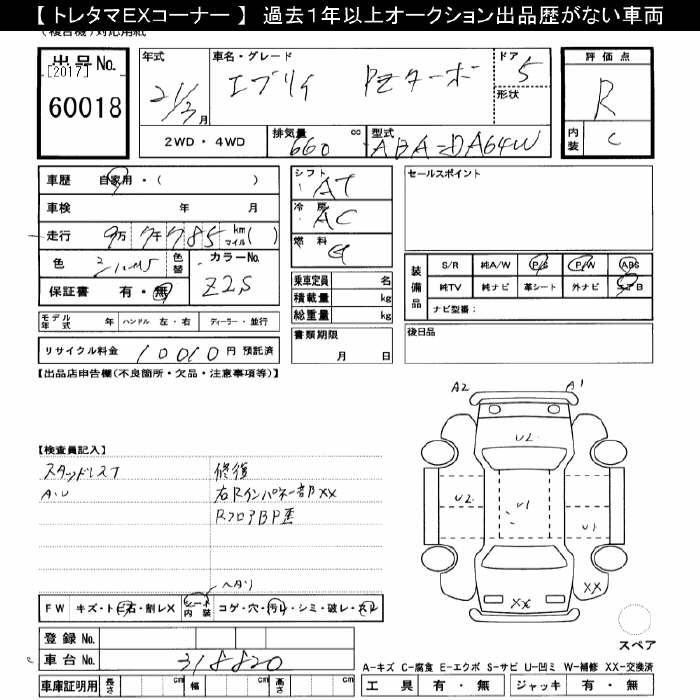 【トレタマEXコーナー】 過去1年以上オークション出品歴がない車両
出品No.
[2017]
60018
年式 21/3月
車名・グレード エブリィ PZターボ
ドア 5
形状
2WD・4WD
排気量 660 cc
型式 ABA-DA64W
評価点 R
内装 C
車歴 自家用・( )
車検 年 月
走行 9万7千785 km マイル( )
色
色替
カラーNo. Z2S
保証書 有・無
シフト AT
冷房 AC
燃料 G
乗車定員 名
積載量 kg
総重量 kg
セールスポイント
装備品
S/R 純A/W P/S P/W ABS
純TV 純ナビ 革シート 外ナビ エアB
ナビ型番:
モデル年式 年 ハンドル 左・右 ディーラー・並行
リサイクル料金 10010 円 預託済
書類期限 月 日
後日品
【出品店申告欄(不良箇所・欠品・注意事項等)】
A2 A1
U2
U2 U1 U1
XX
XX
【検査員記入】
スタッドレス
A.U
修復
右Rインパネー部XX
RフロアBP歪
ヘタリ
FW キズ・トビ石・割レX
シート内装 コゲ・穴・汚レ・シミ・破レ・スレ
スペア
登録No.
車台No. 318820
A-キズ C-腐食 E-エクボ S-サビ U-凹ミ W-補修 XX-交換済
車庫証明用 長さ cm 幅 cm 高さ cm
工具 有・無 ジャッキ 有・無